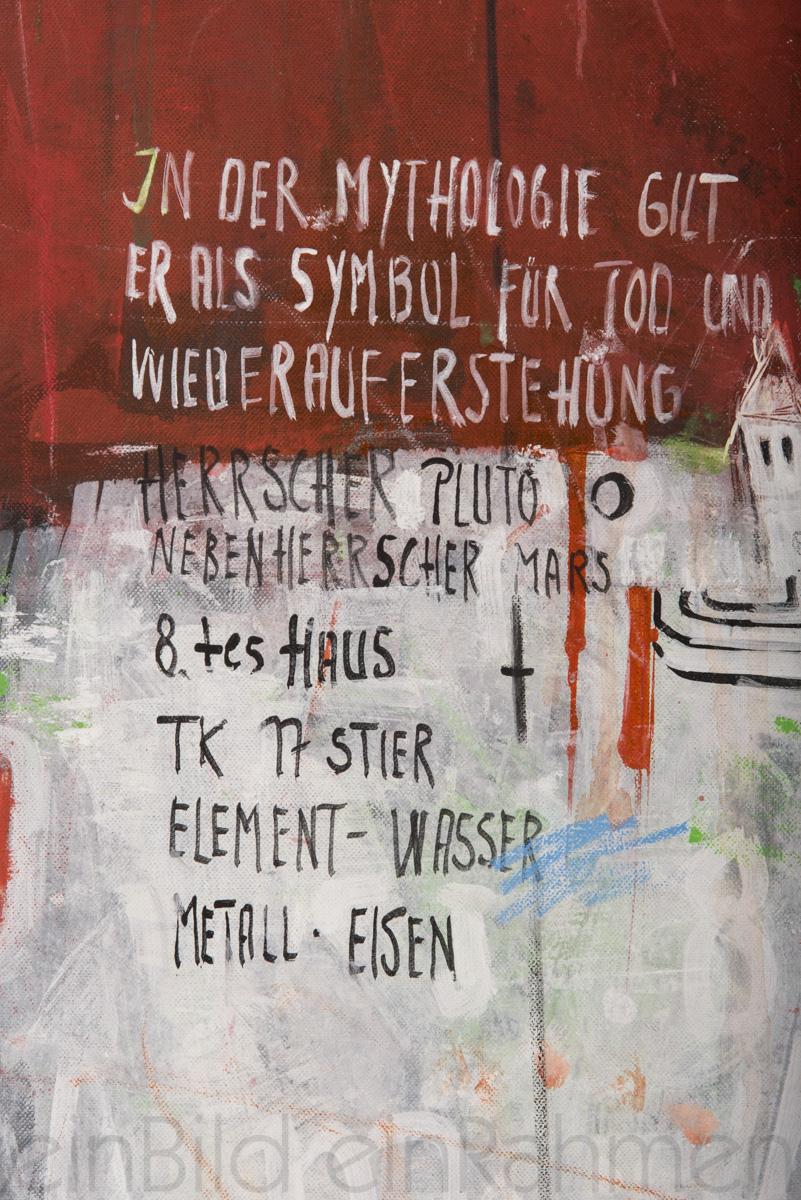 IN DER MYTHOLOGIE GILT
ER ALS SYMBOL FÜR TOD UND
WIEDERAUFERSTEHUNG
HERRSCHER PLUTO
NEBENHERRSCHER MARS
8. tes HAUS
TK 17 STIER
ELEMENT- WASSER
METALL · EISEN
einBild einRahmen